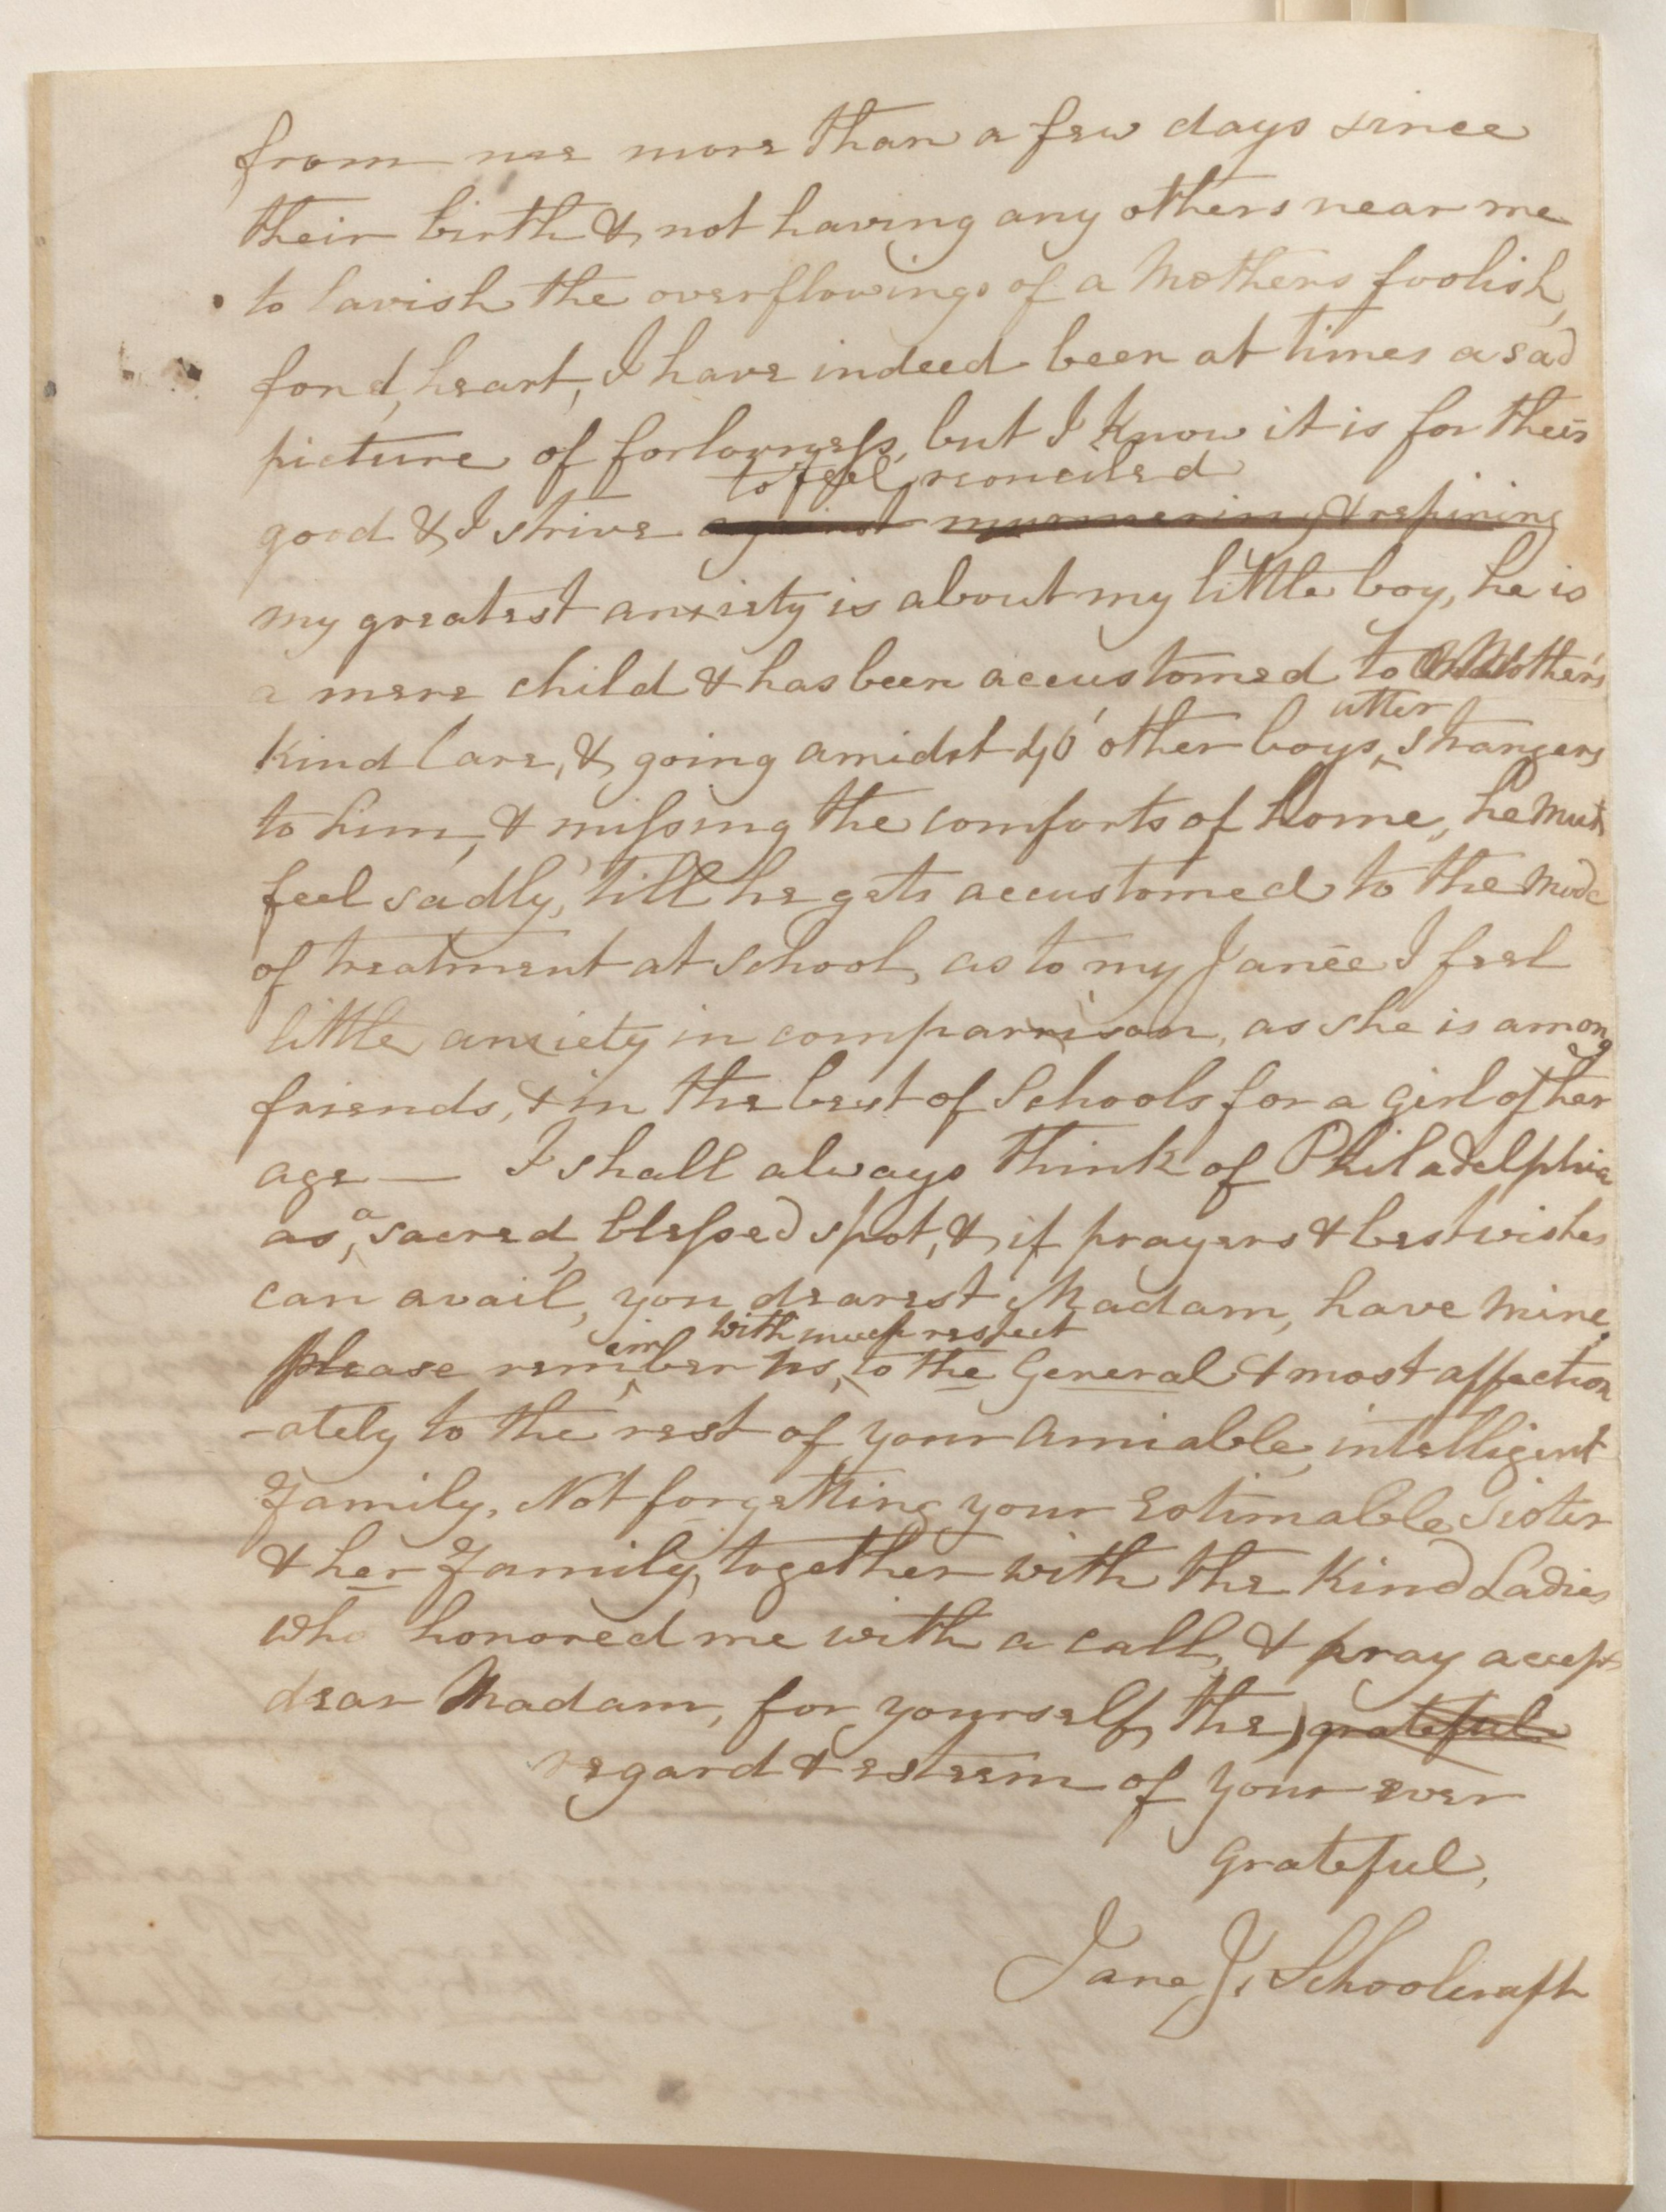 from me more than a few days since
their birth & not having any others near me
to lavish the overflowings of a Mothers foolish,
fond, heart, I have indeed been at times a sad
picture of forlorness, but I know it is for their
to feel reconciled
good & I strive against murmering & repining
my greatest anxiety is about my little boy, he is
a mere child & has been accustomed to Mother's
utter
kind Care, & going amidst 40 other boys, strangers
to him, & missing the comforts of home, he must
feel sadly, till he gets accustomed to the mode
of treatment at School, as to my Janée I feel
little anxiety in comparrison, as she is among
friends, & in the best of Schools for a girl of her
age — I shall always think of Philadelphia
as, a sacred, blessed spot, & if prayers & best wishes
can avail, you dearest Madam, have mine.
em with much respect
please remember us, to the General & most affection
-ately to the rest of your amiable, intelligent
Family, Not forgetting your Estimable Sister
& her Family, together with the kind Ladies
who honored me with a call, & pray accept
dear Madam, for yourself, the grateful
regard & esteem of your ever
grateful,
Jane J. Schoolcraft